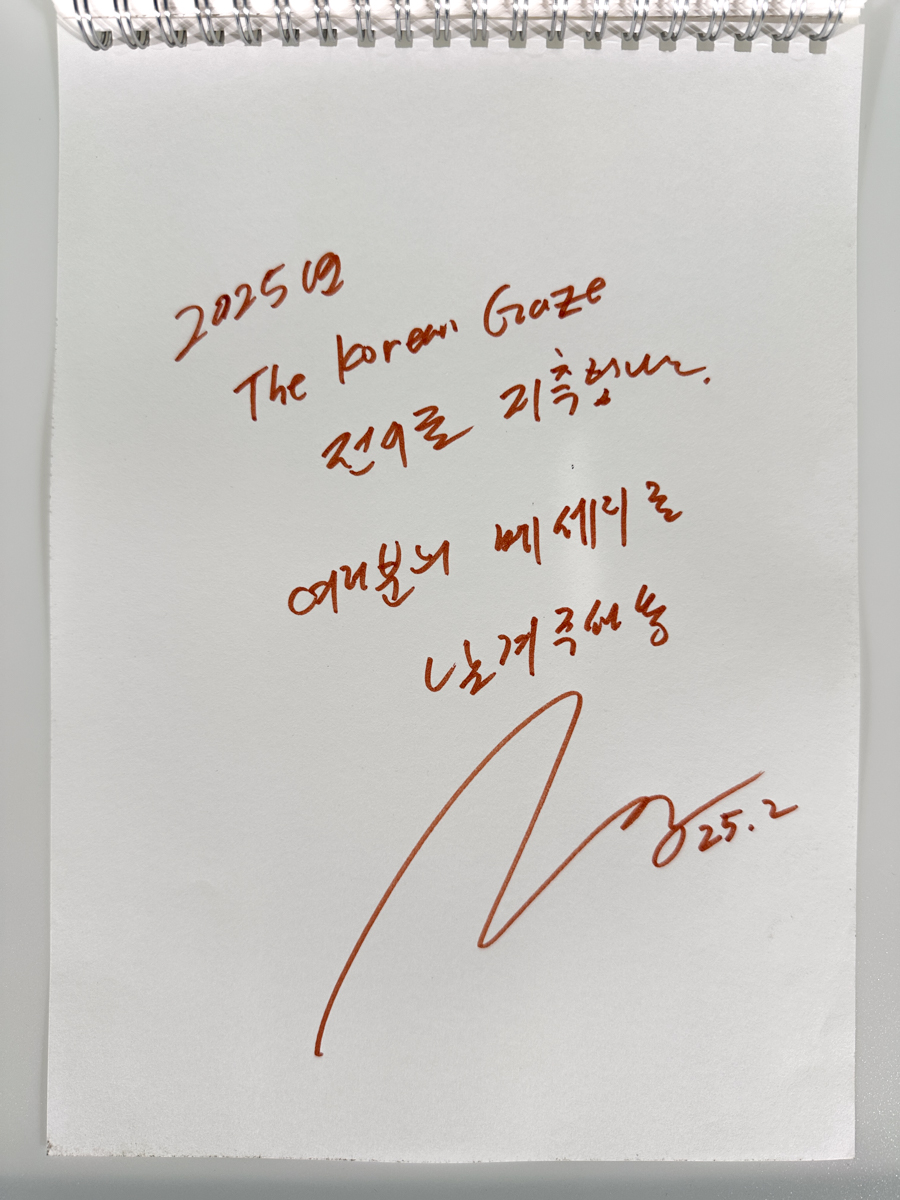 2025년
The Korean Gaze
전시를 기축합니다.
여러분의 메세지를
남겨주세용
25.2